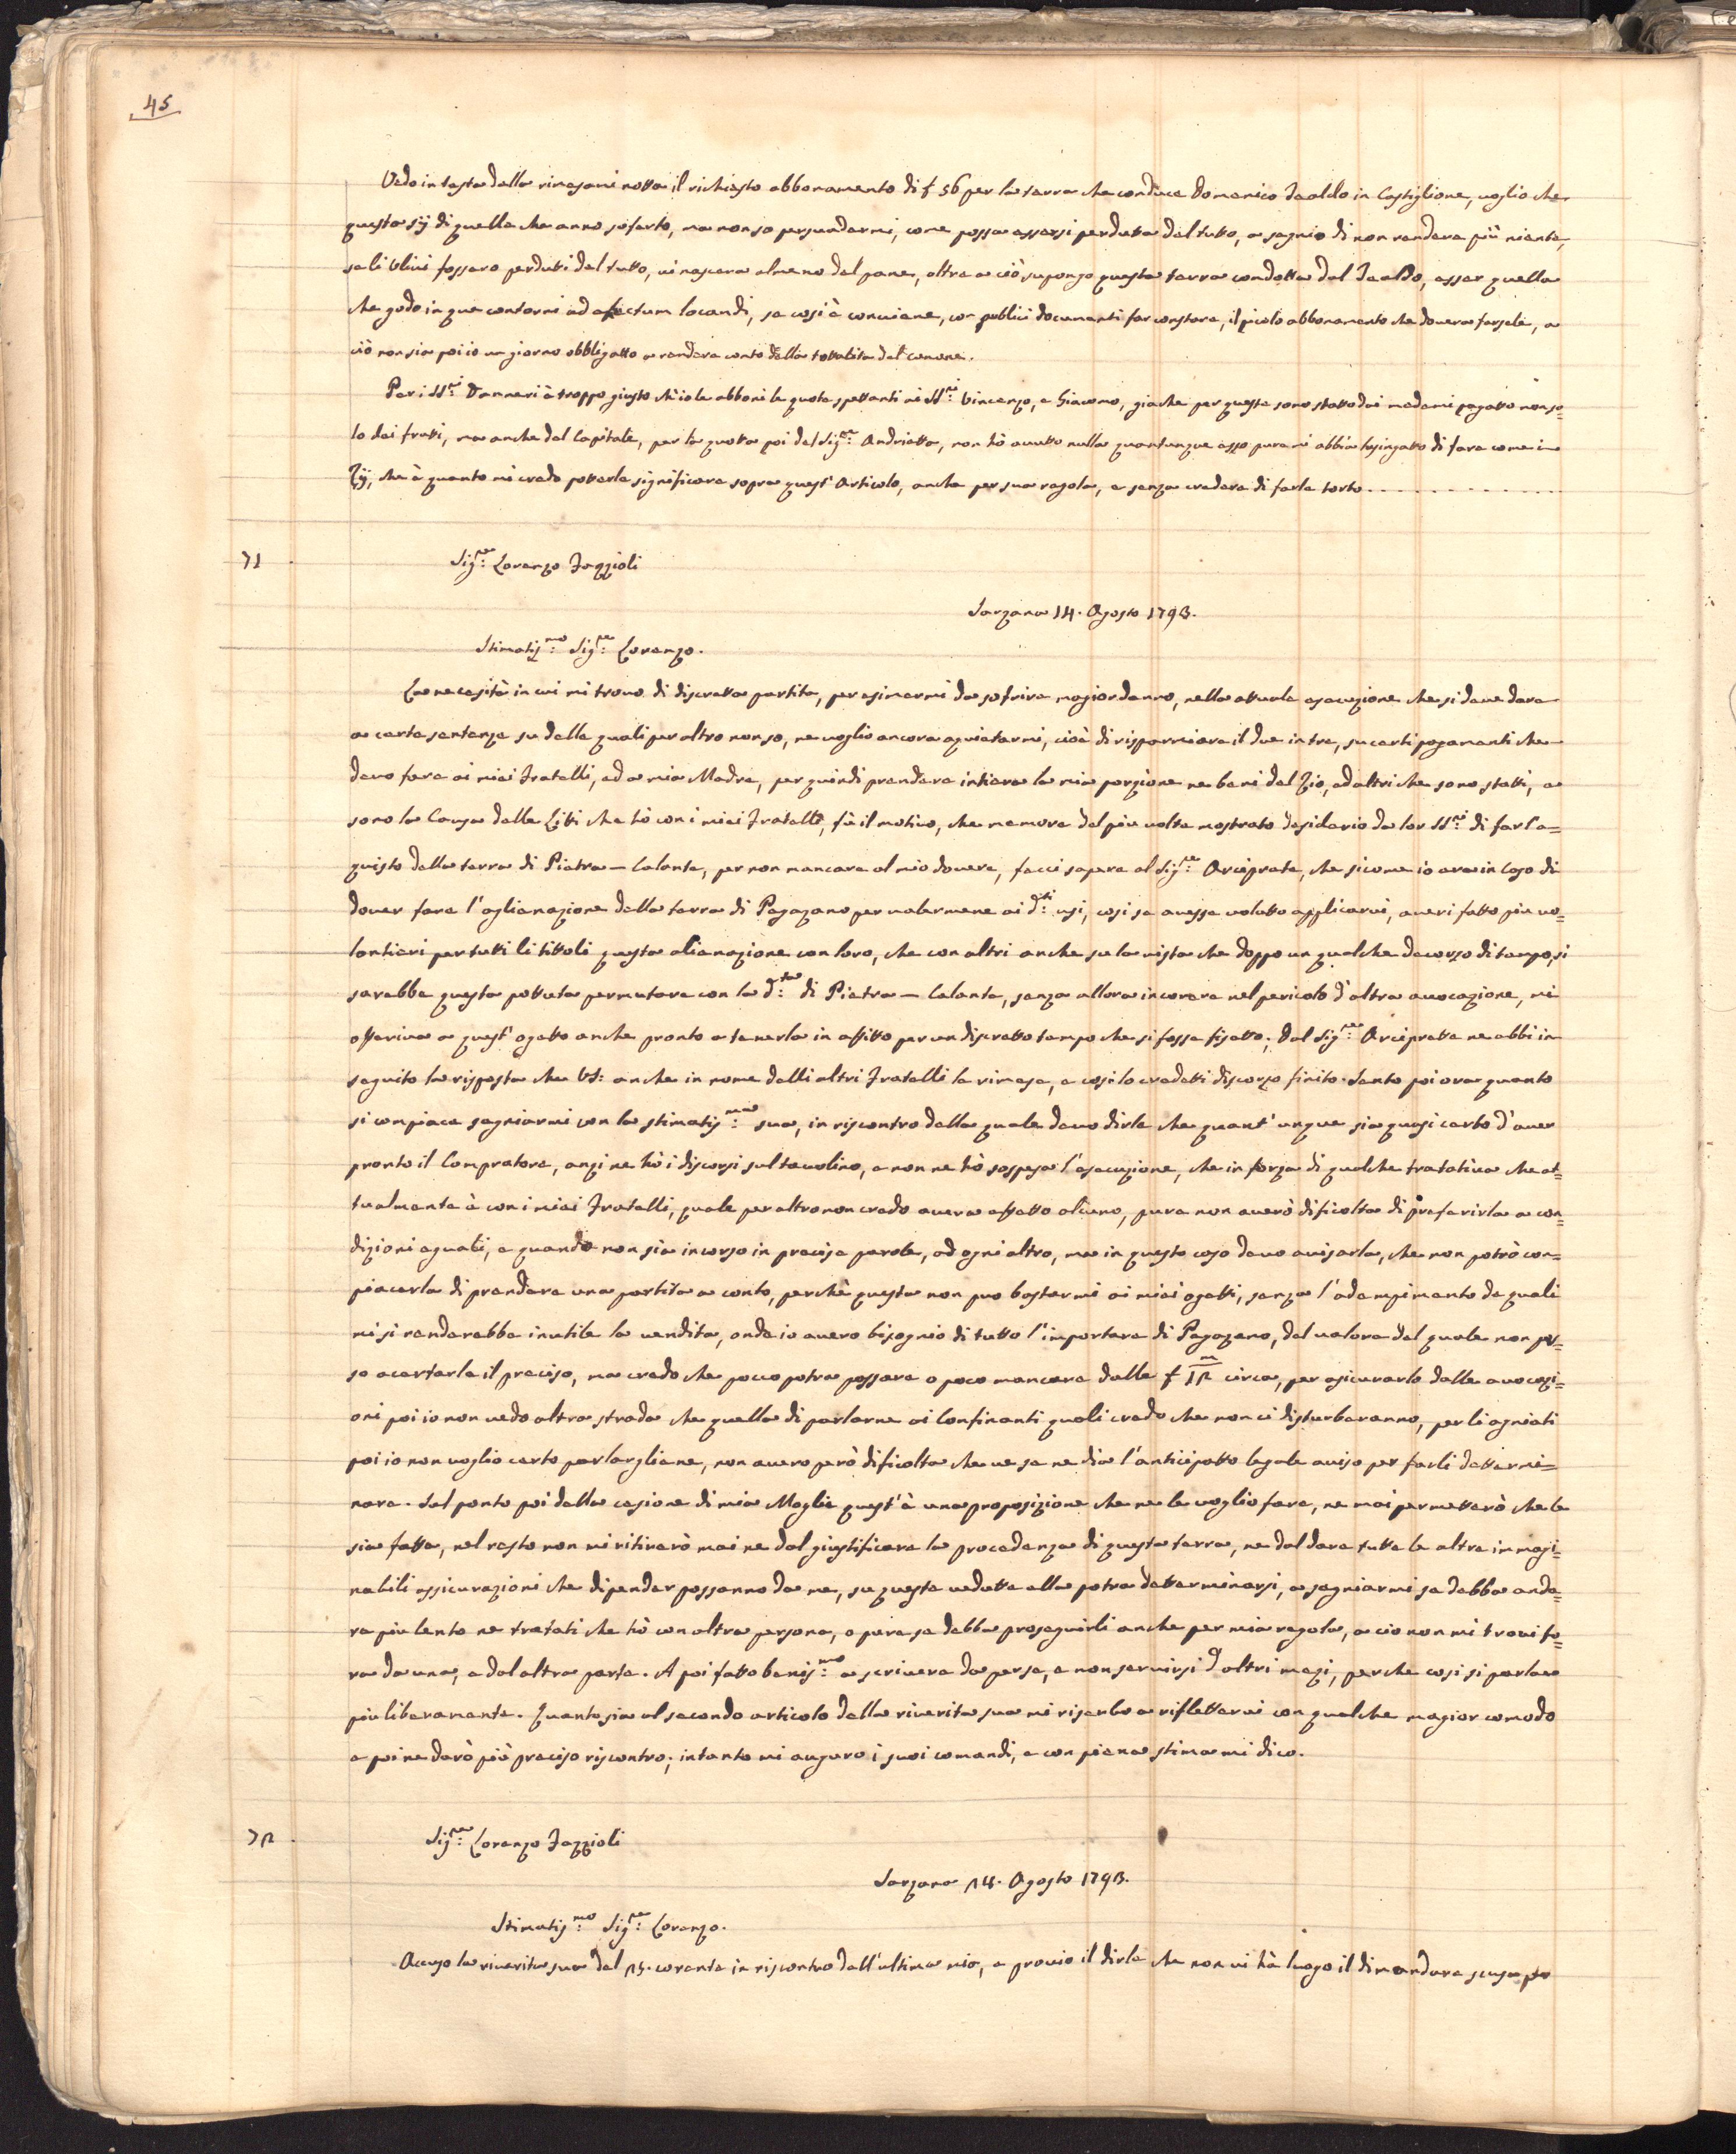 45
Vedo in testa della rimesami notta il richiesto abbonamento di f 56 per la terra che conduce Domenico Tealdo in Castiglione, voglio che
questa sij di quelle che anno soferto, ma non so persuadermi, come possa essersi perduta del tutto, a segnio di non rendere più niente,
se li Ulivi fossero perduti del tutto, vi nascerà almeno del pane, oltre a ciò supongo questa terra condotta dal Tealdo, esser quella
che godo in que contorni ad efectum locandi, se cosi è conviene, con publici documenti far constare, il picolo abbonamento che doverà farsele, a
ciò non sia poi io un giorno obbligatto a rendere conto della tottalità del canone.
Per i SS.ri Vanneri è troppo giusto ch'io le abboni le quote spettanti ai SS.ri Vincenzo, e Giacomo, giache per queste sono statto dai medemi pagatto non so=
lo dei frutti, ma anche del Capitale, per la quotta poi del Sig.re Andrietta, non hò avutto nulla quantunque esso pure mi abbia lusingatto di fare come i
Zij, che è quanto mi credo potterle significare sopra quest'Articolo, anche per sua regola, e senza credere di farle torto.............
71
Sig.re Lorenzo Fazzioli
Sarzana 14. Agosto 1793.
Stimatis.mo Sig.re Lorenzo.
La necesità in cui mi trovo di discretta partita, per esimermi da sofrire magior danno, nella attuale esecuzione che si deve dare
a certe sentenze su delle quali per altro non so, ne voglio ancora aquietarmi, cioè di risparmiare il due in tre, su certi pagamenti che
devo fare ai miei Fratelli, ed a mia Madre, per quindi prendere intiera la mia porzione ne beni del Zio, ed altri che sono statti, e
sono la Causa delle Litti che hò con i miei Fratelli, fù il motivo, che memore del più volte mostrato desiderio da lor SS.ri di far l'a=
quisto della terra di Pietra-Calante, per non mancare al mio dovere, feci sapere al Sig.re Arciprete, che sicome io ero in caso di
dover fare l'aglienazione della terra di Pegazano per valermene ai d.ti usi, cosi se avesse volutto applicarvi, averi fatto più vo=
lontieri per tutti li tittoli questa alienazione con loro, che con altri anche su la vista che doppo un qualche decorso di tempo, si
sarebbe questa pottuta permutare con la d.ta di Pietra-Calante, senza allora incorere nel pericolo d'altra avocazione, mi
offeriva a quest'ogetto anche pronto a tenerla in affitto per un discretto tempo che si fosse fisatto. Dal Sig.re Arciprette ne ebbi in
seguito la risposta che VS: anche in nome delli altri Fratelli le rimese, e cosi lo credetti discorso finito. Sento poi ora quanto
si compiace segniarmi con la stimatis.ma sua, in riscontro della quale devo dirle che quant'unque sia quasi certo d'aver
pronto il Compratore, anzi ne hò i discorsi sul tavolino, e non ne hò sospesa l'esecuzione, che in forza di qualche tratativa che at=
tualmente è con i miei Fratelli, quale per altro non credo avera effetto alcuno, pure non averò dificoltà di preferirla a con=
dizioni eguali, e quando non sia incorso in precise parole, ad ogni altro, ma in questo caso devo avisarla, che non potrò con=
piacerla di prendere una partita a conto, perchè questa non puo bastarmi ai miei ogetti, senza l'adempimento de quali
mi si renderebbe inutile la vendita, onde io averò bisognio di tutto l'importare di Pegazano, del valore del quale non pos=
so acertarle il preciso, ma credo che pocco potrà passare o poco mancare dalle f 12m circa, per asicurarlo dalle avocazi=
oni poi io non vedo altra strada che quella di parlarne ai Confinanti quali credo che non ci disturberanno, per li agniati
poi io non voglio certo parlargliene, non averò però dificolta che ve se ne dia l'anticipatto legale aviso per farli determi=
nare. Sul ponto poi della cesione di mia Moglie quest'è una proposizione che ne le voglio fare, ne mai permetterò che le
sia fatta, nel resto non mi ritirerò mai ne dal giustificare la procedenza di questa terra, ne dal dare tutte le altre immagi=
nabili assicurazioni che dipender possanno da me, su queste vedutte ella potrà determinarsi, e segniarmi se debba anda=
re piu lento ne tratati che hò con altra persona, o pure se debba proseguirli anche per mia regola, a cio non mi trovi fo=
ra da una, e dal altra parte. A poi fatto benis.mo a scrivere da perse, e non servirsi d'altri mezi, perche cosi si parla
piu liberamente. Quanto sia al secondo articolo della riverita sua mi riserbo a rifletterci con qualche magior comodo
e poi ne darò più preciso riscontro; intanto mi auguro i suoi comandi, e con piena stima mi dico.
72
Sig.re Lorenzo Fazzioli
Sarzana 24. Agosto 1793.
Stimatis.mo Sig.re Lorenzo.
Accuso la riverita sua del 25. corente in riscontro dell'ultima mia, e provio il dirle che non vi hà luogo il dimandare scusa per